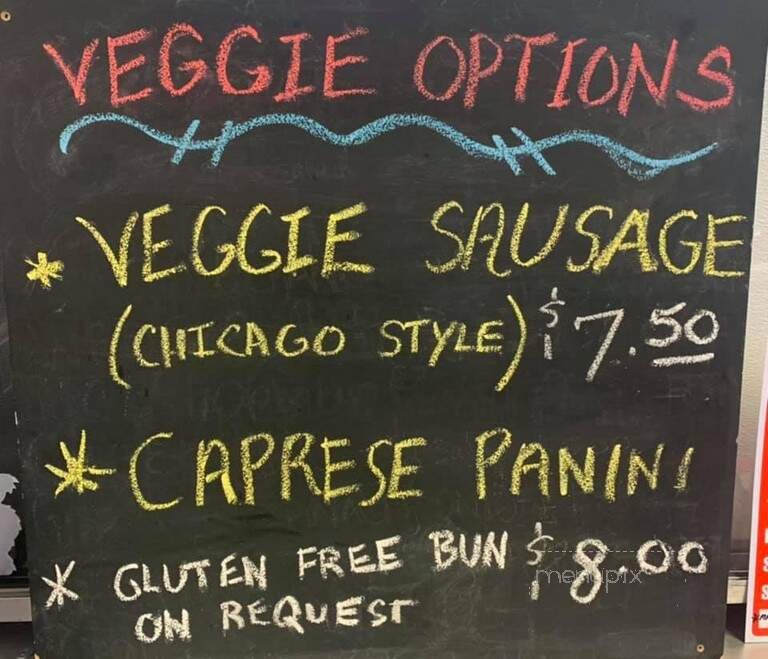 VEGGIE OPTIONS
* VEGGIE SAUSAGE
(CHICAGO STYLE) $7.50
* CAPRESE PANINI
* GLUTEN FREE BUN $8.00
ON REQUEST
menupix